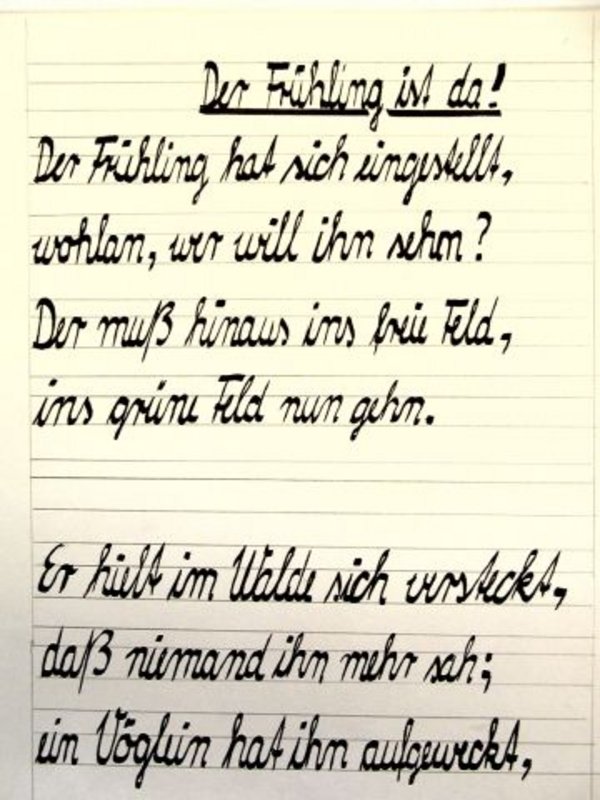 Der Frühling ist da!
Der Frühling hat sich eingestellt,
wohlan, wer will ihn sehen?
Der muß hinaus ins freie Feld,
ins grüne Feld nun gehn.
Er hielt im Walde sich versteckt,
daß niemand ihn mehr sah;
ein Vöglein hat ihn aufgeweckt,